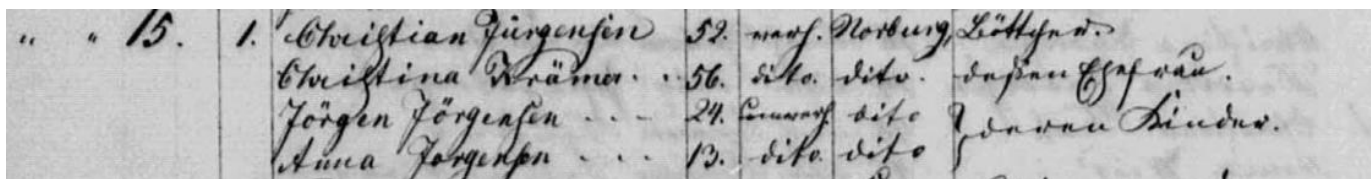 " " 15. 1. Christian Jürgensen 52. verh. Norburg, Böttcher.
Christina Krämer . . 56. dito. dito. deßen Ehefrau.
Jörgen Jörgensen - - - 24. unverh. dito } deren Kinder.
Anna Jörgensen . . . 13. dito. dito